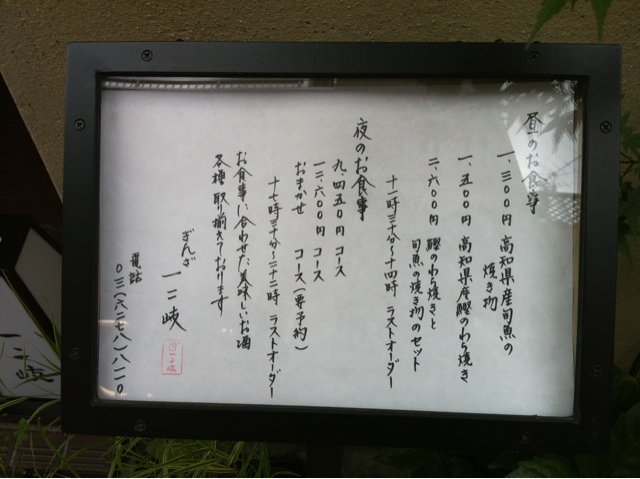 昼のお食事
一、三〇〇円 高知県産旬魚の
焼き物
一、五〇〇円 高知県産鰹のわら焼き
二、六〇〇円 鰹のわら焼きと
旬魚の焼き物のセット
十一時三十分〜十四時 ラストオーダー
夜のお食事
九、四五〇円 コース
一二、六〇〇円 コース
おまかせ コース(要予約)
十七時三十分〜二十二時 ラストオーダー
お食事に合わせた美味しいお酒
各種取り揃えております
ぎんざ
一二岐
電話
〇三(六二七八)八一一〇